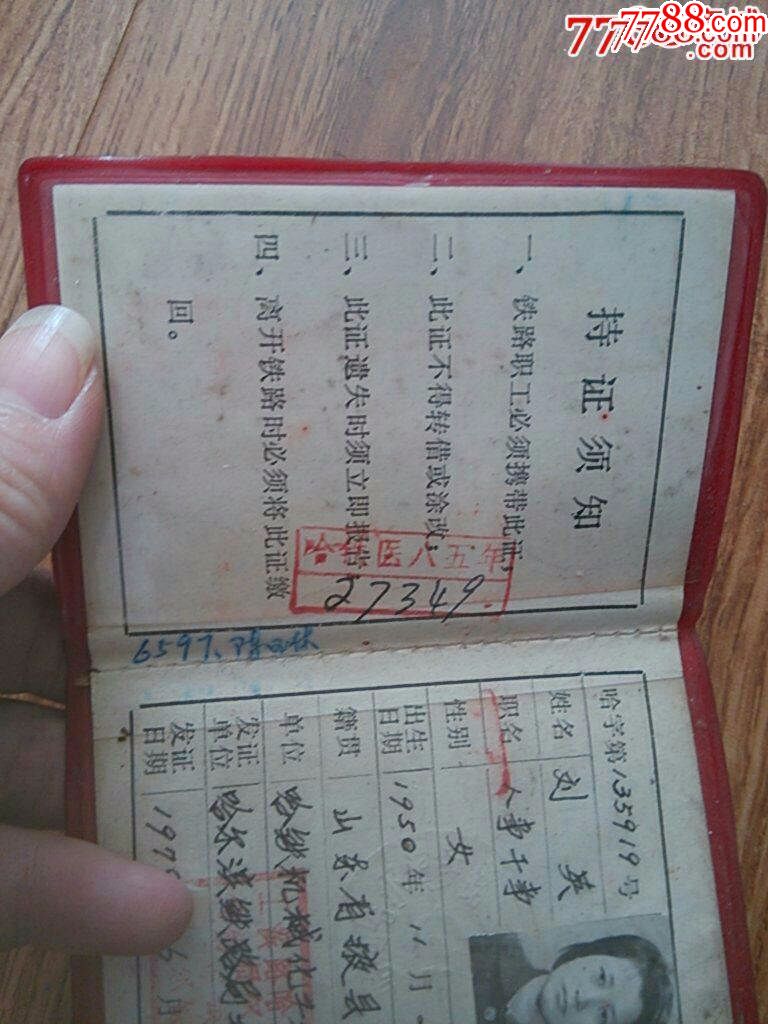 777788.com
持证须知
一、铁路职工必须携带此证；
二、此证不得转借或涂改；
三、此证遗失时须立即报告；
四、离开铁路时必须将此证缴
回。
八五年
27349
6597
哈字第135919号
姓名 刘英
职名 人事干事
性别 女
出生日期 1950年11月
籍贯 山东省掖县
单位 哈铁机械化
发证单位 哈尔滨铁路局
发证日期 197 6月